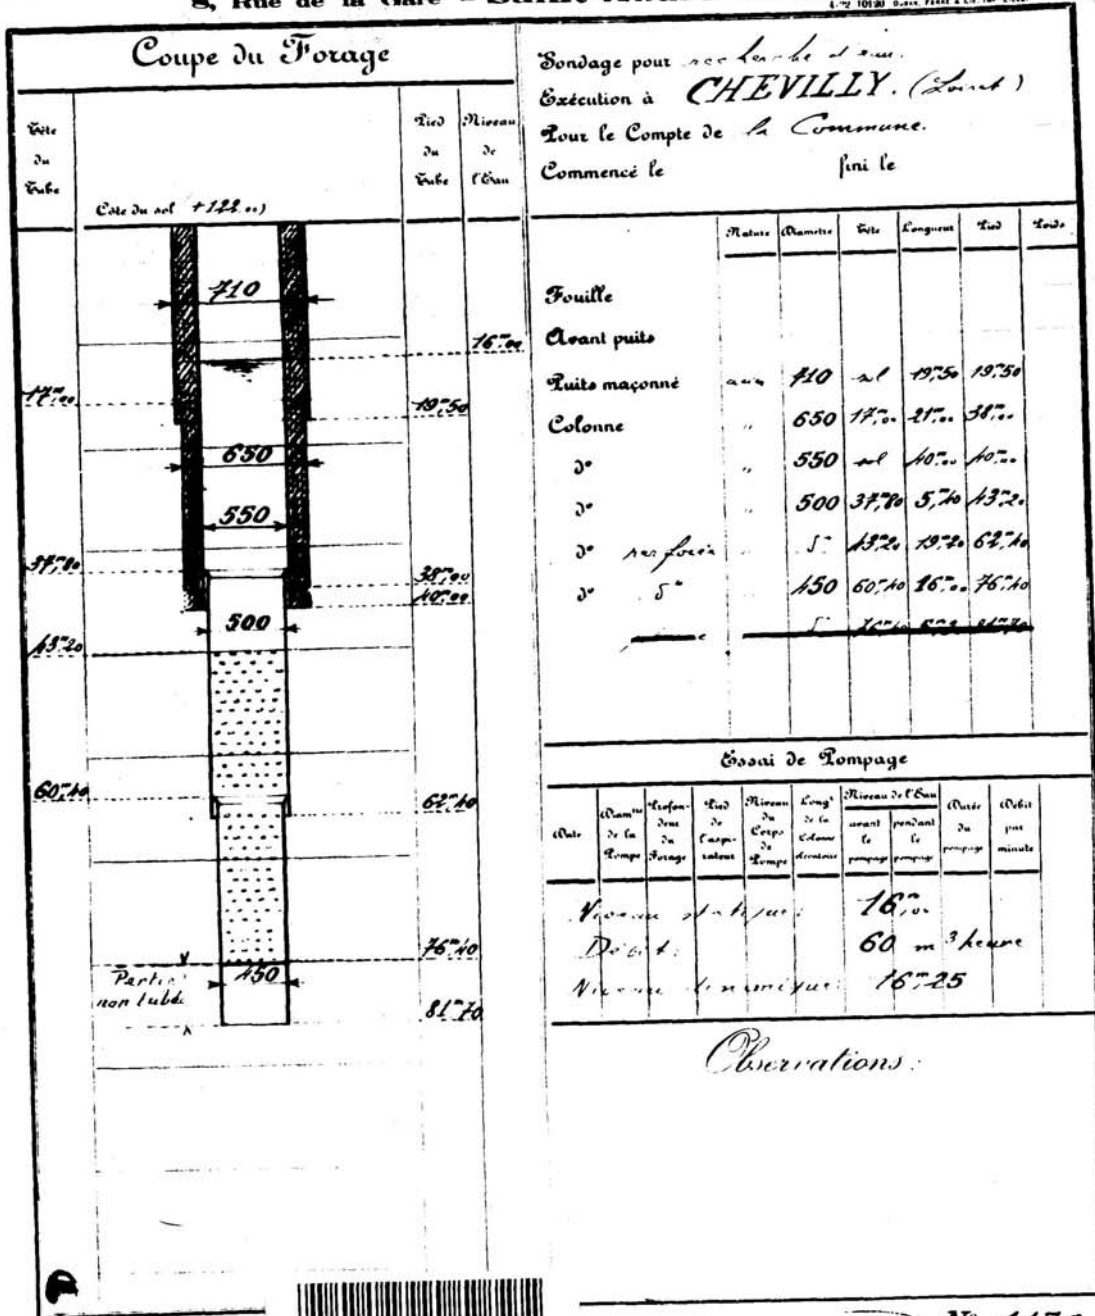 8, Rue de la Gare
Coupe du Forage
Tête du Tube
Pied du Tube
Niveau de l'Eau
Côte du sol +122.00)
710
16m00
17m00
19m50
650
550
37m80
38m00
40m00
500
43m20
60m40
62m40
76m40
Partie non tubée
450
81m70
Sondage pour recherche d'eau.
Exécution à CHEVILLY. (Loiret)
Pour le Compte de la Commune.
Commencé le fini le
Nature Diamètre Tête Longueur Pied Poids
Fouille
Avant puits
Puits maçonné acier 710 sol 19m50 19m50
Colonne " 650 17m00 21m00 38m00
d° " 550 sol 40m00 40m00
d° " 500 37m80 5m40 43m20
d° perforée " d° 43m20 19m20 62m40
d° d° 450 60m40 16m00 76m40
Essai de Pompage
Date
Diamtre de la Pompe
Profondeur du Forage
Pied de l'aspirateur
Niveau du Corps de Pompe
Longr de la Colonne élévatoire
Niveau de l'Eau
avant le pompage
pendant le pompage
Durée du pompage
Débit par minute
Niveau statique: 16m00
Débit: 60 m3 heure
Niveau dinamique: 16m25
Observations: